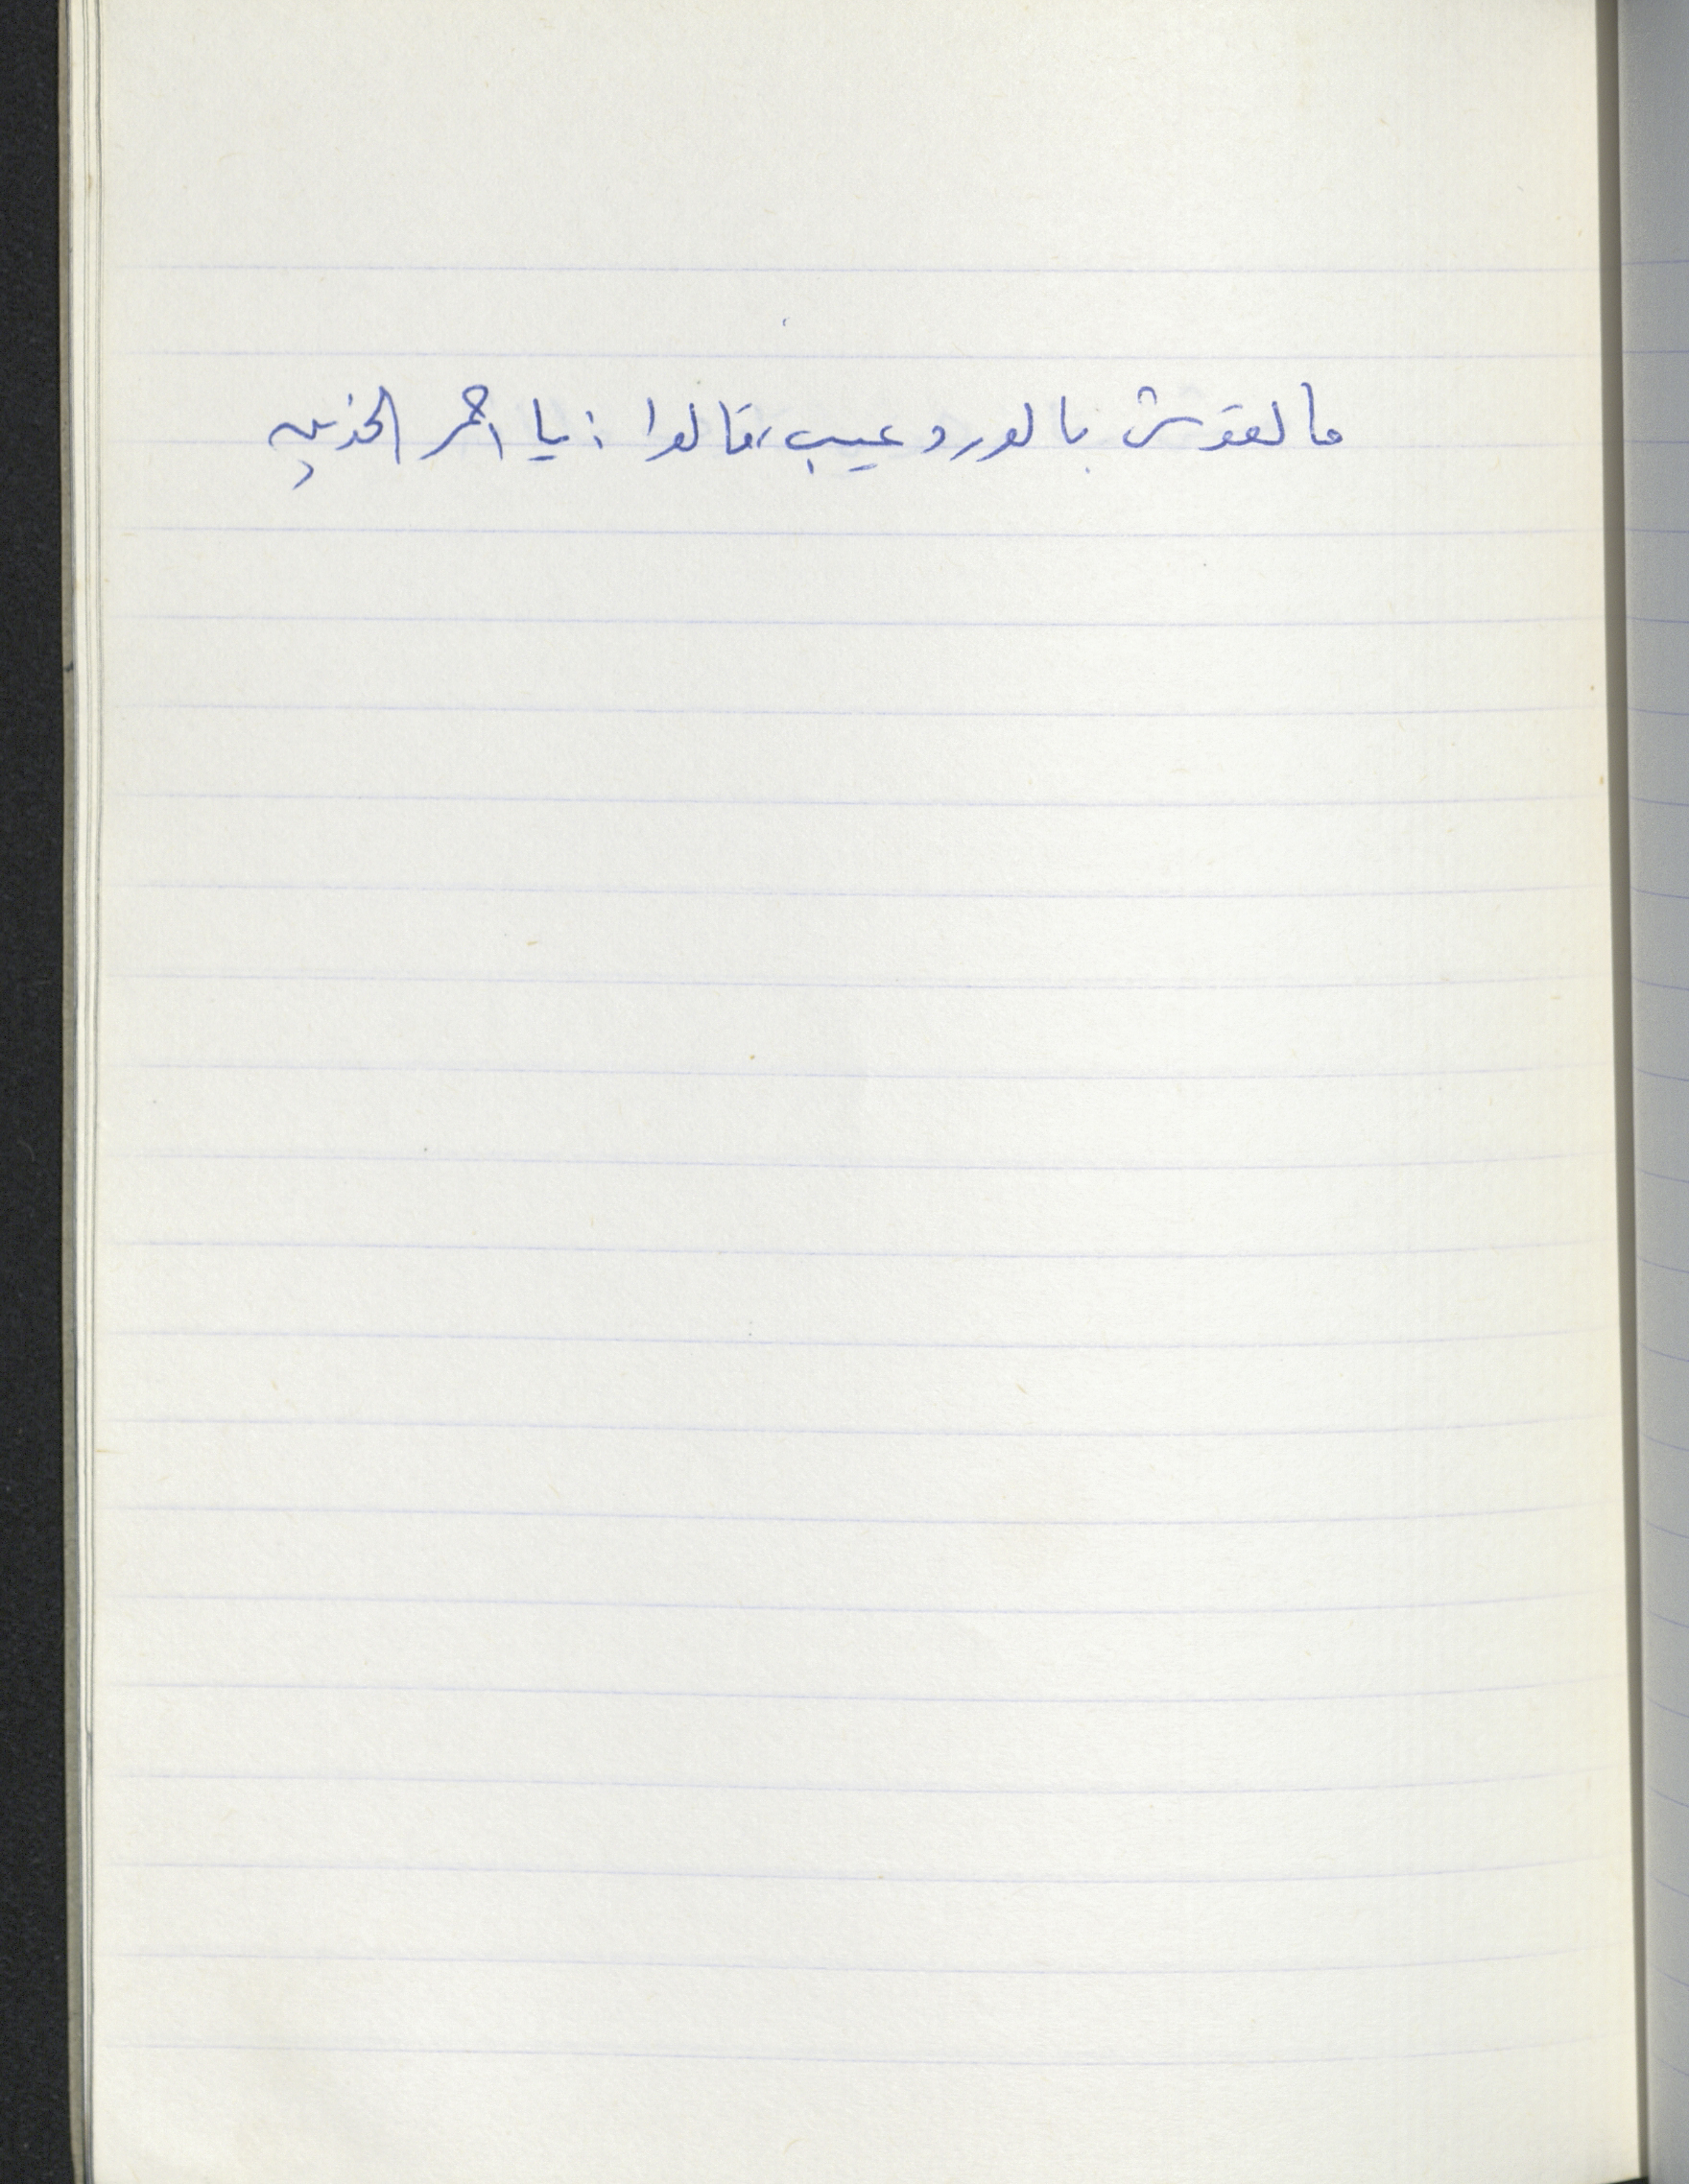 مالقوش بالورد عيب، قالوا: يا احمر الخدين